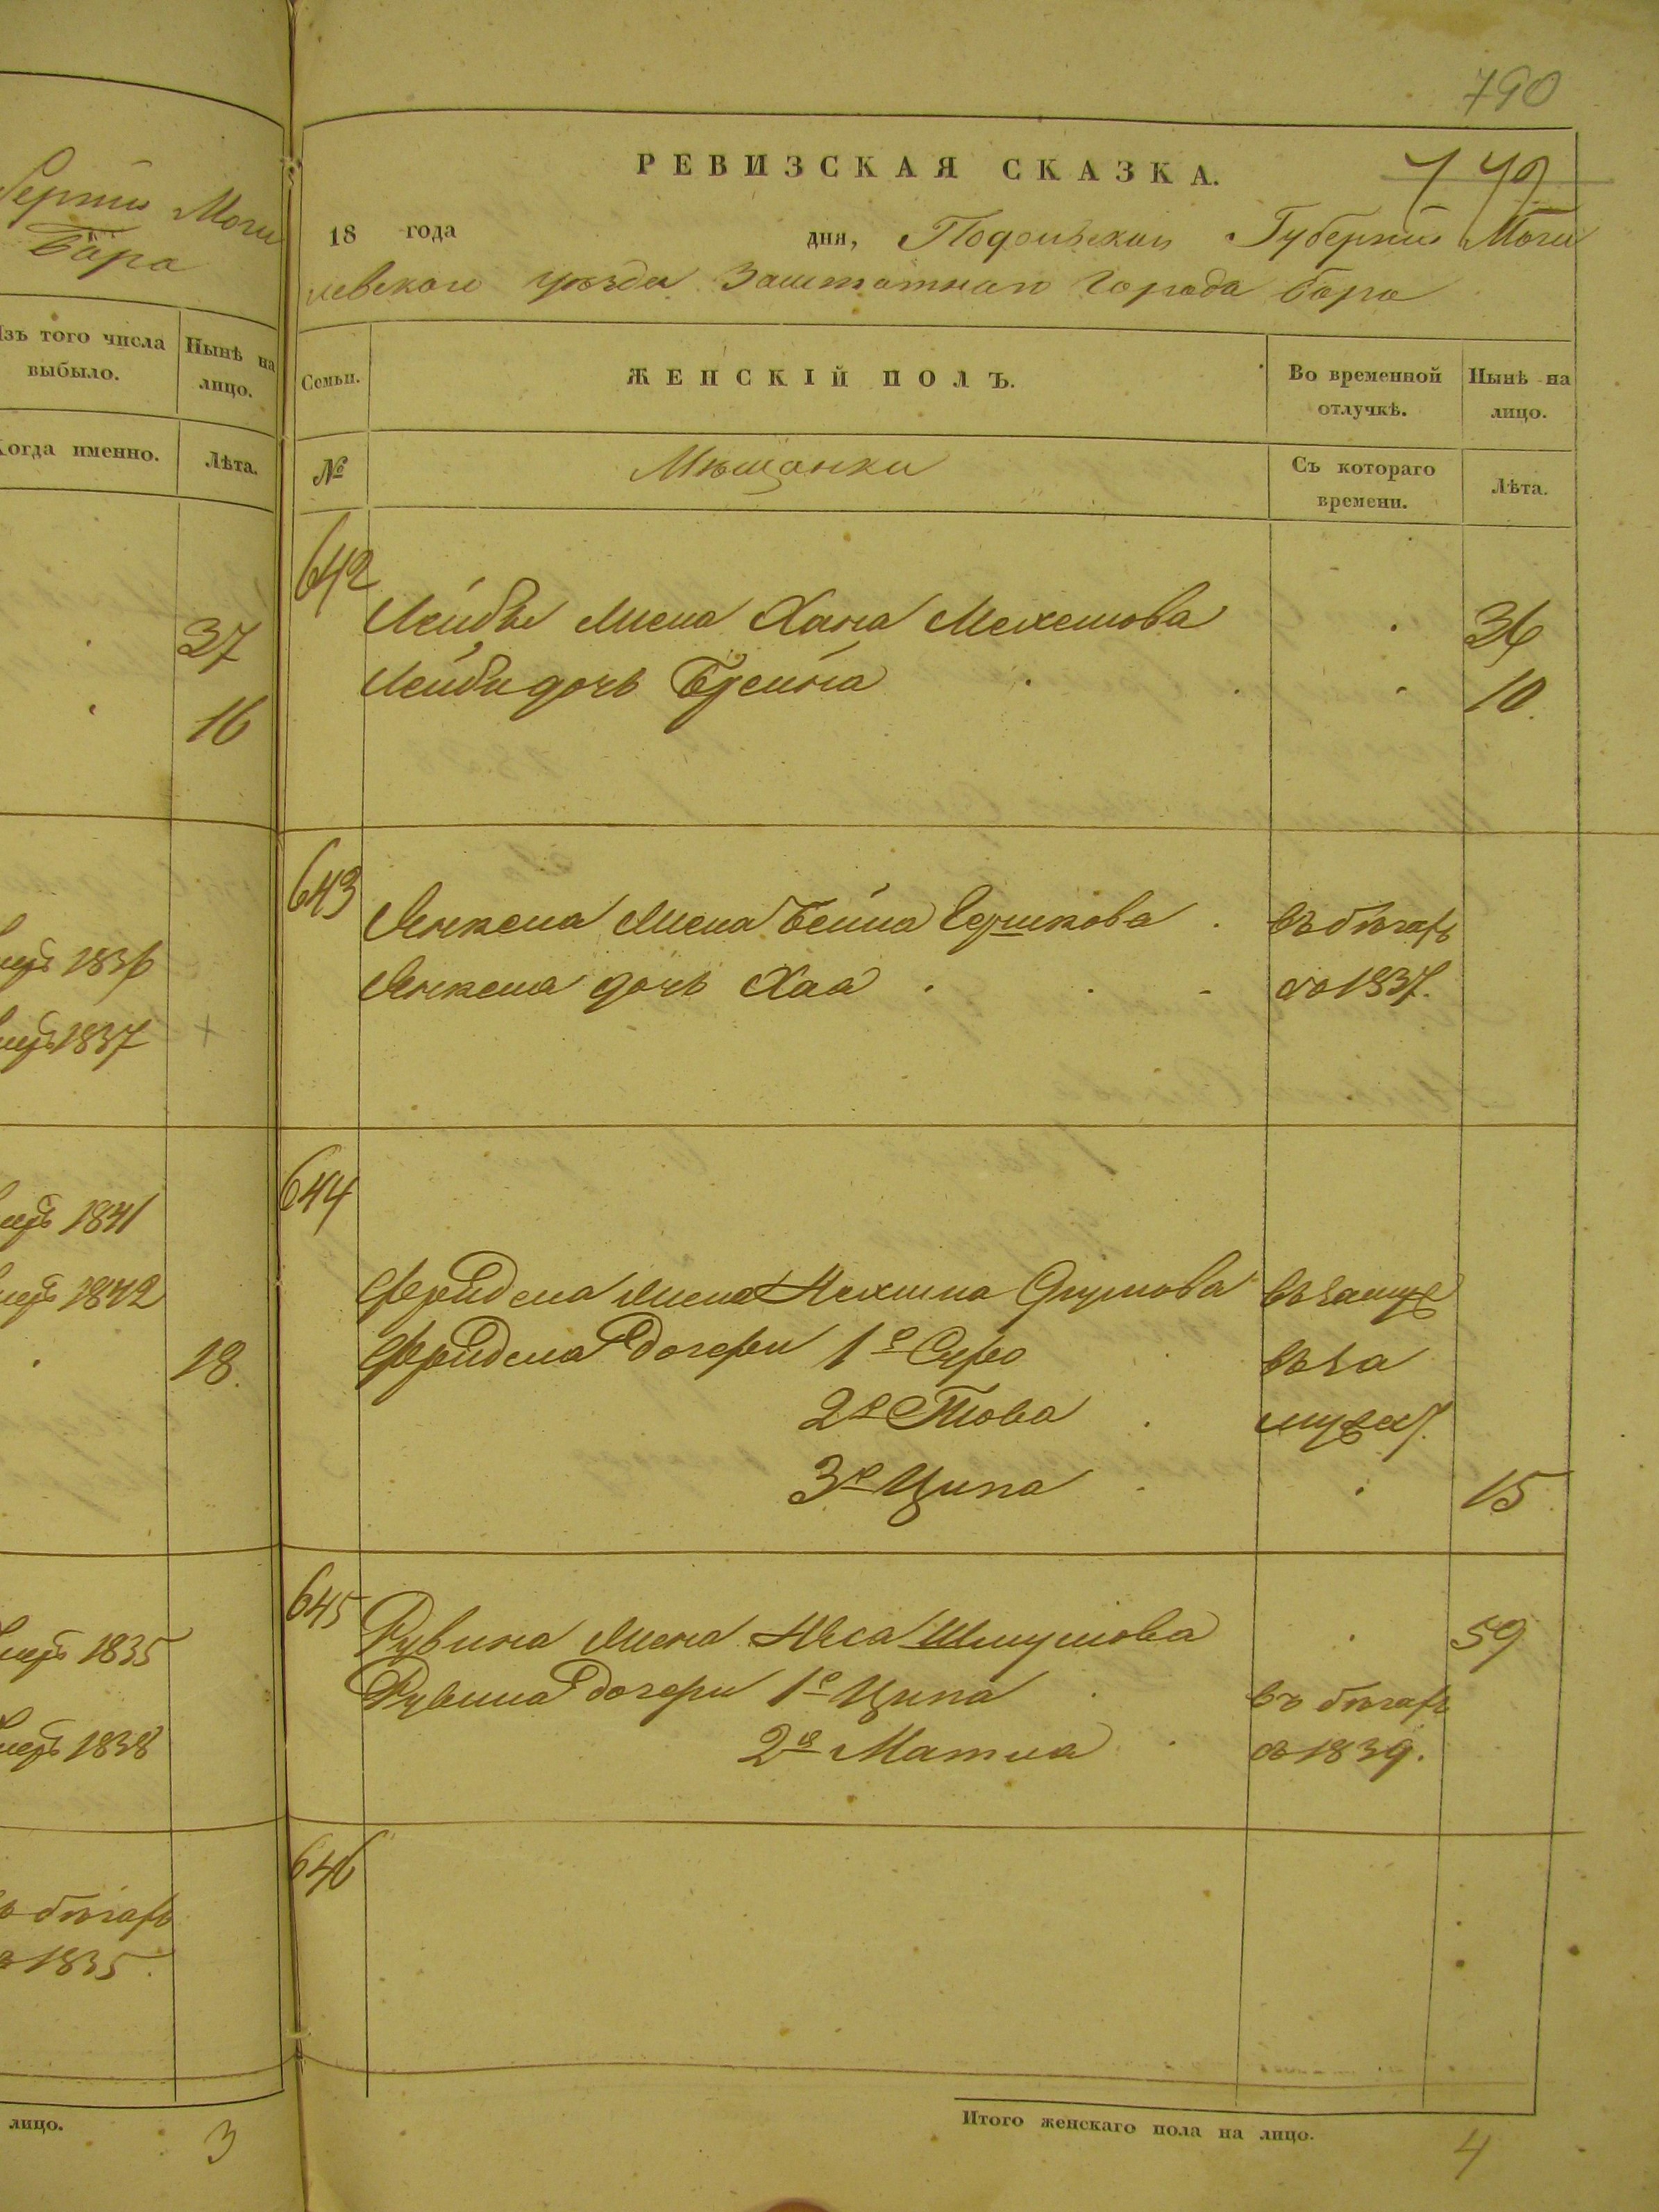 790
РЕВИЗСКАЯ СКАЗКА.
18 года дня, Подольской Губернiи Моги
левскаго уѣзда Заштатнаго города Бара
Бара
Изъ того числа
выбыло.
Нынѣ на
лицо.
Когда именно.
Лѣта.
Семьи.
ЖЕНСКІЙ ПОЛЪ.
Во временной
отлучкѣ.
Нынѣ на
лицо.
№
Мѣщанки
Съ котораго
времени.
Лѣта.
37
16
642
Лейбы жена Хана Мехелова 36
Лейби дочь Брейна 10
1836
1837
643
Янкеля жена Бейла Гершкова въ бѣгахъ
Янкеля дочь Хая съ 1837.
1841
1842
18
644
Фройдела жена Нехима въ замуж
Фройдела дочери 1я Сура въ за
2я Това мужах
3я Ципа 15
1835
1838
645
Рувина жена Неса Шмулова 59
Рувина дочери 1я Ципа въ бѣгахъ
2я Матля съ 1839.
въ бѣгахъ
съ 1835.
646
лицо. 3
Итого женскаго пола на лицо. 4